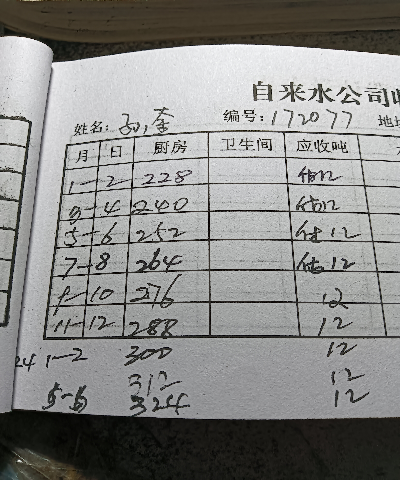 自来水公司
姓名: 编号:172077 地
月 日 厨房 卫生间 应收吨
1-2 228 估12
3-4 240 估12
5-6 252 估12
7-8 264 估12
9-10 276 12
11-12 288 12
24 1-2 300 12
312 12
324 12